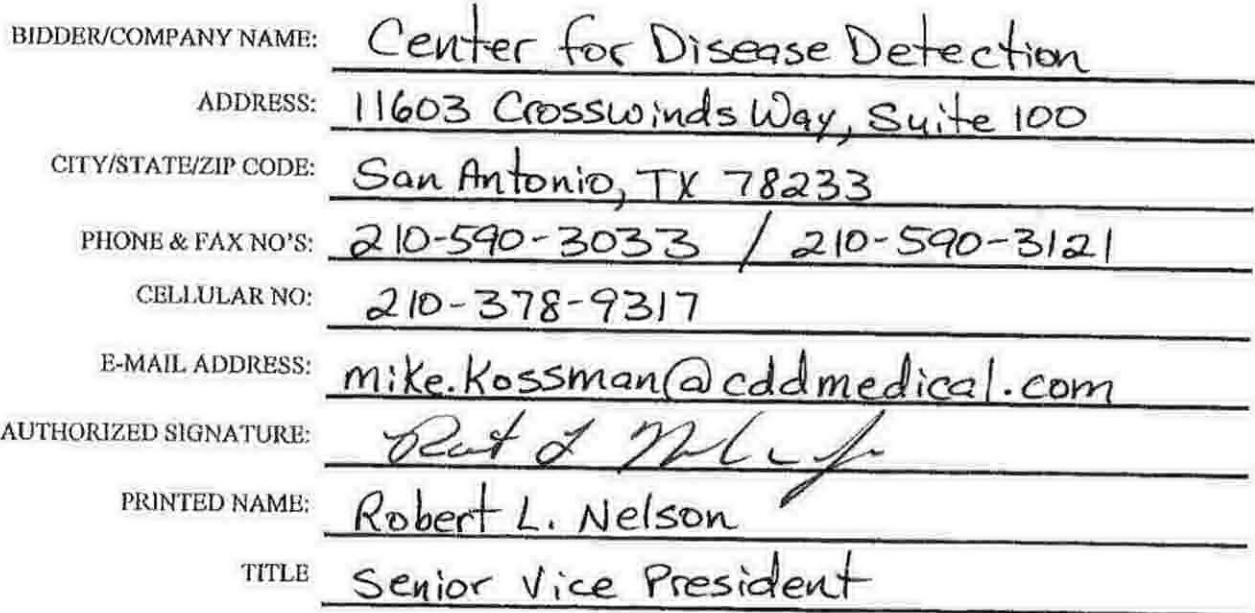 BIDDER/COMPANY NAME: Center for Disease Detection
ADDRESS: 11603 Crosswinds Way, Suite 100
CITY/STATE/ZIP CODE: San Antonio, TX 78233
PHONE & FAX NO'S: 210-590-3033 / 210-590-3121
CELLULAR NO: 210-378-9317
E-MAIL ADDRESS: mike.kossman@cddmedical.com
AUTHORIZED SIGNATURE:
PRINTED NAME: Robert L. Nelson
TITLE Senior Vice President